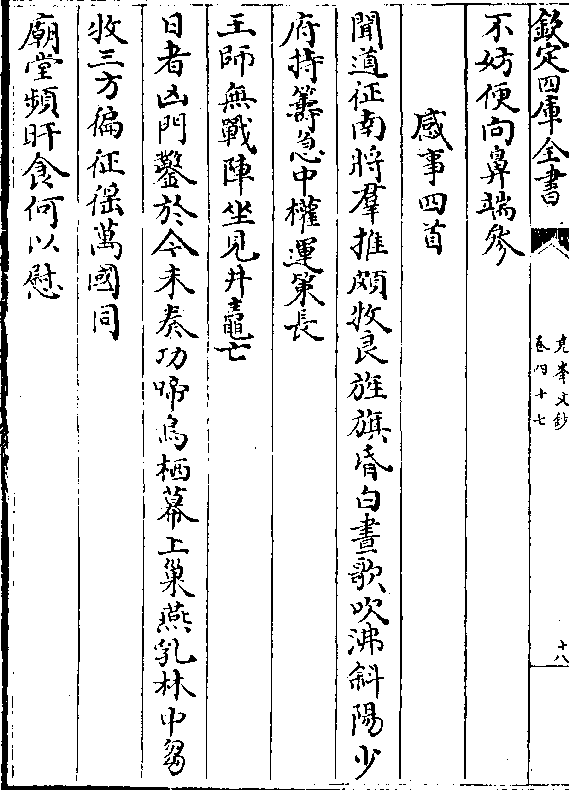 欽定四庫全書
堯峯文鈔
卷四十七
十八
不妨便向鼻端參
感事四首
聞道征南將羣推頗牧良旌旗昏白晝歌吹沸斜陽少
府持籌急中權運策長
王師無戰陣坐見井鼃亡
日者凶門鑿於今未奏功啼烏栖幕上巢燕乳林中芻
牧三方徧征徭萬國同
廟堂頻旰食何以慰